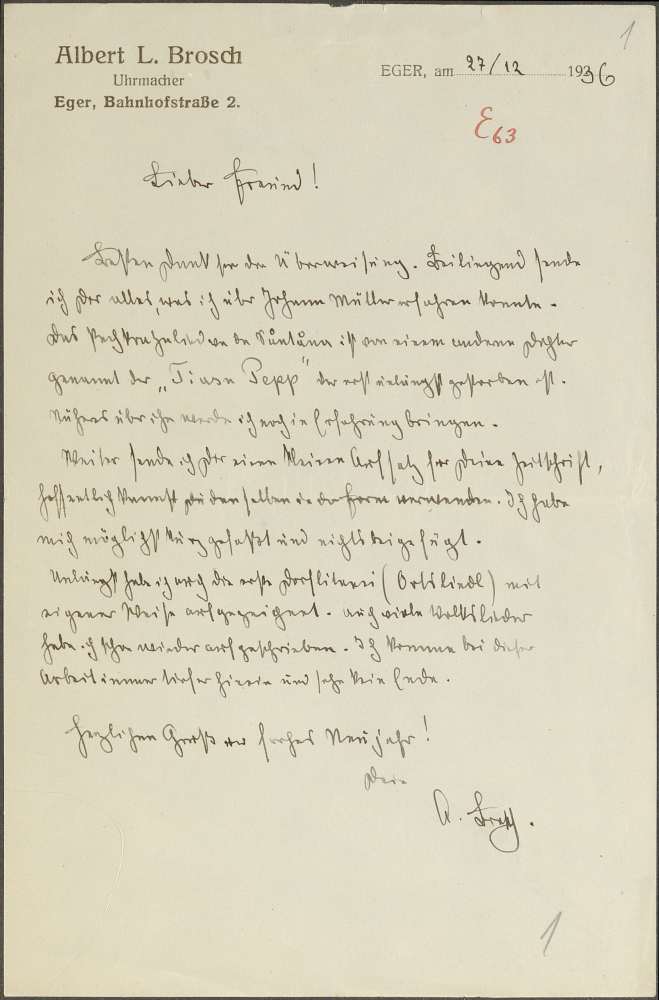 1
Albert L. Brosch
Uhrmacher
Eger, Bahnhofstraße 2.
EGER, am 27/12 1936
E63
Lieber Freund!
Besten Dank für die Überweisung. Beiliegend sende
ich Dir alles, was ich über Johann Müller erfahren konnte.
Das Pechkratzalied is von einem anderen Dichter
genannt der „Tiasn Pepp" der erst unlängst gestorben ist.
Näheres über ihn werde ich noch in Erfahrung bringen.
Weiter sende ich Dir einen kleinen Aufsatz für Deine Zeitschrift,
hoffentlich kannst Du denselben in der Form verwenden. Ich habe
mich möglichst kurz gefaßt und nichts beigefügt.
Unlängst habe ich auch die erste Dorflitanei (Ortsliedl) mit
eigener Weise aufgezeichnet. Auch viele Volkslieder
habe ich schon wieder aufgeschrieben. Ich komme bei dieser
Arbeit immer tiefer hinein und sehe kein Ende.
Herzlichen Gruß frohes Neujahr!
Dein
A. Brosch.
1